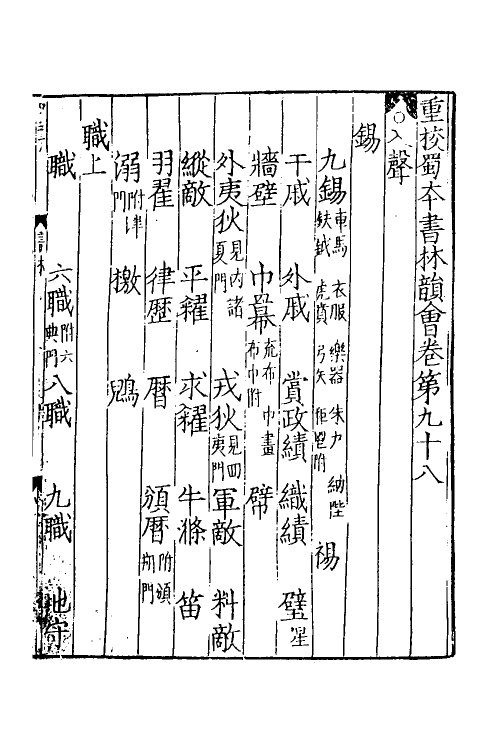 重校蜀本書林韻會卷第九十八
○入聲
錫
九錫 車馬 衣服 樂器 朱户 納陛 鈇鉞 虎賁 弓矢 秬鬯附 裼
干戚 外戚 賞政績 織績 璧星
牆壁 巾冪 疏布巾 畫布巾附 甓
外夷狄 見内諸夏門 戎狄 見四夷門 軍敵 料敵
縱敵 平糴 求糴 牛滌 笛
羽翟 律歴 暦 頒暦 附頒朔門
溺 附津門 檄 鶂
職上
職 六職 附六典門 八職 九職 地守